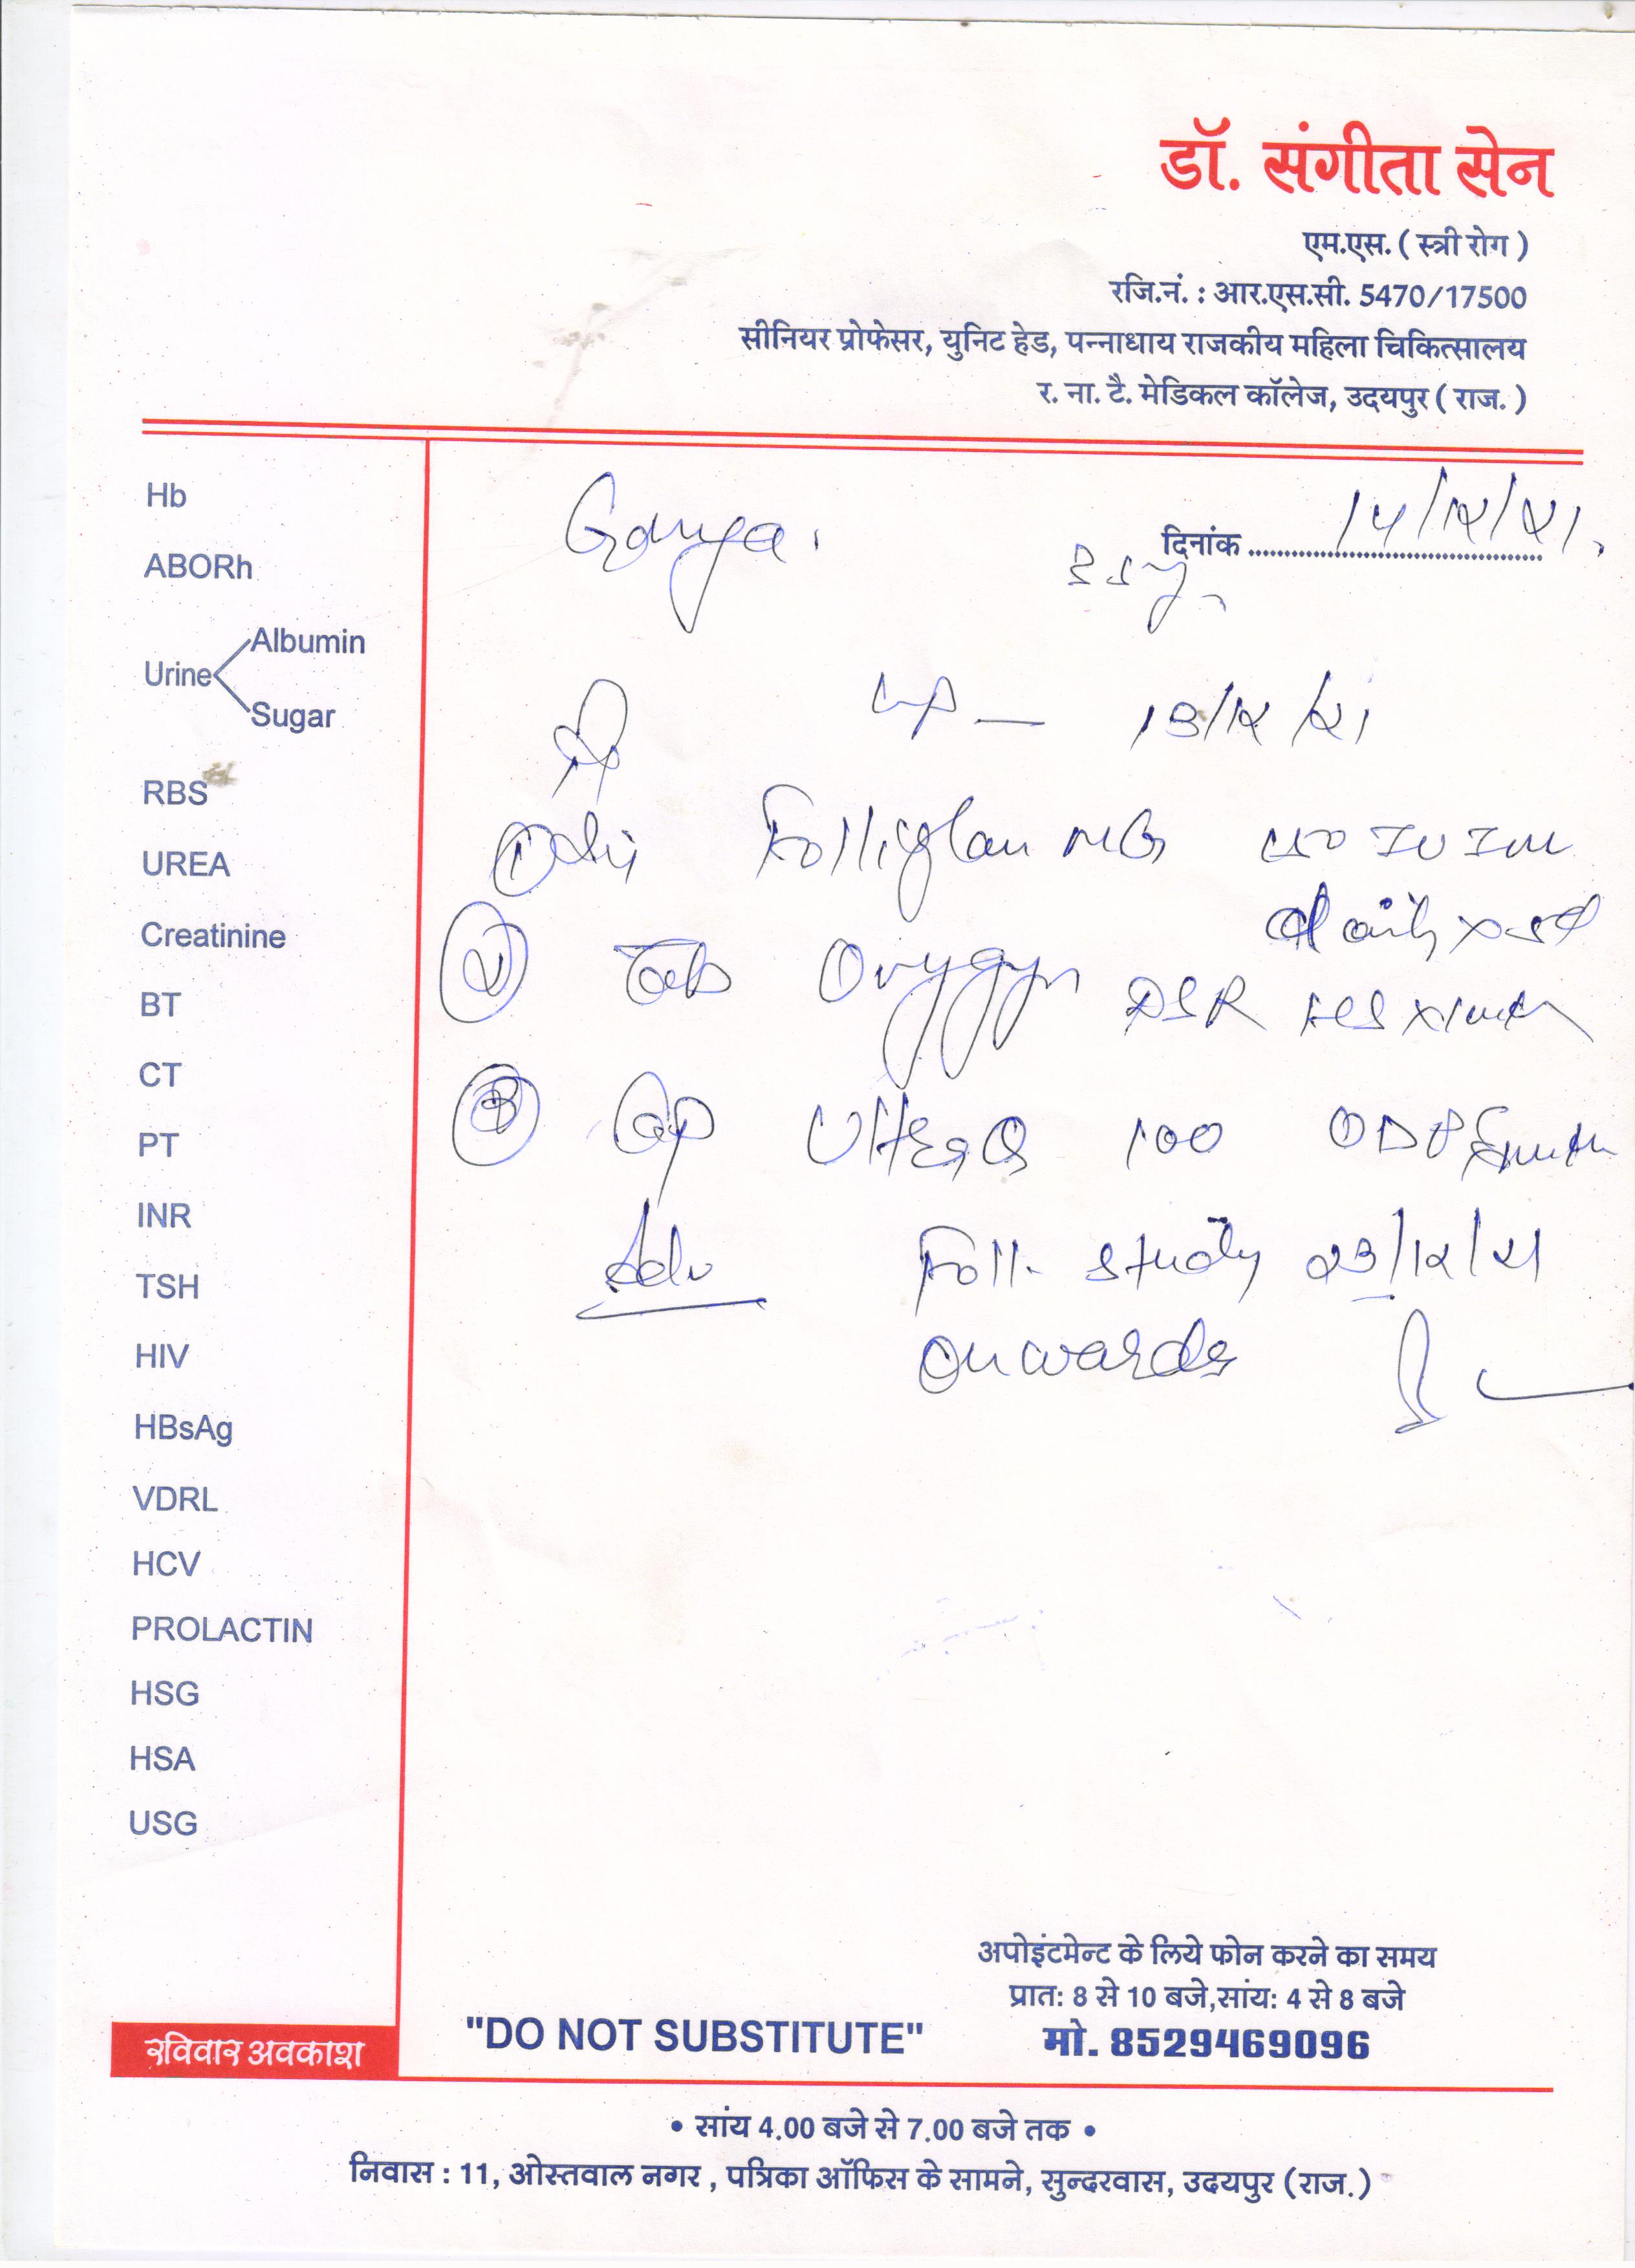 डॉ. संगीता सेन
एम.एस. ( स्त्री रोग )
रजि.नं. : आर.एस.सी. 5470/17500
सीनियर प्रोफेसर, युनिट हेड, पन्नाधाय राजकीय महिला चिकित्सालय
र. ना. टै. मेडिकल कॉलेज, उदयपुर ( राज. )
दिनांक 14/12/21
13/12/21
Hb
ABORh
Urine
Albumin
Sugar
RBS
UREA
Creatinine
BT
CT
PT
INR
TSH
HIV
HBsAg
VDRL
HCV
PROLACTIN
HSG
HSA
USG
① IU IM
daily
② Tab DSR HS
③ Cap 100 OD
Adv Foll. study 23/12/21
onwards
अपोइंटमेन्ट के लिये फोन करने का समय
प्रात: 8 से 10 बजे,सांय: 4 से 8 बजे
"DO NOT SUBSTITUTE" मो. 8529469096
रविवार अवकाश
• सांय 4.00 बजे से 7.00 बजे तक •
निवास : 11, ओस्तवाल नगर , पत्रिका ऑफिस के सामने, सुन्दरवास, उदयपुर (राज.)